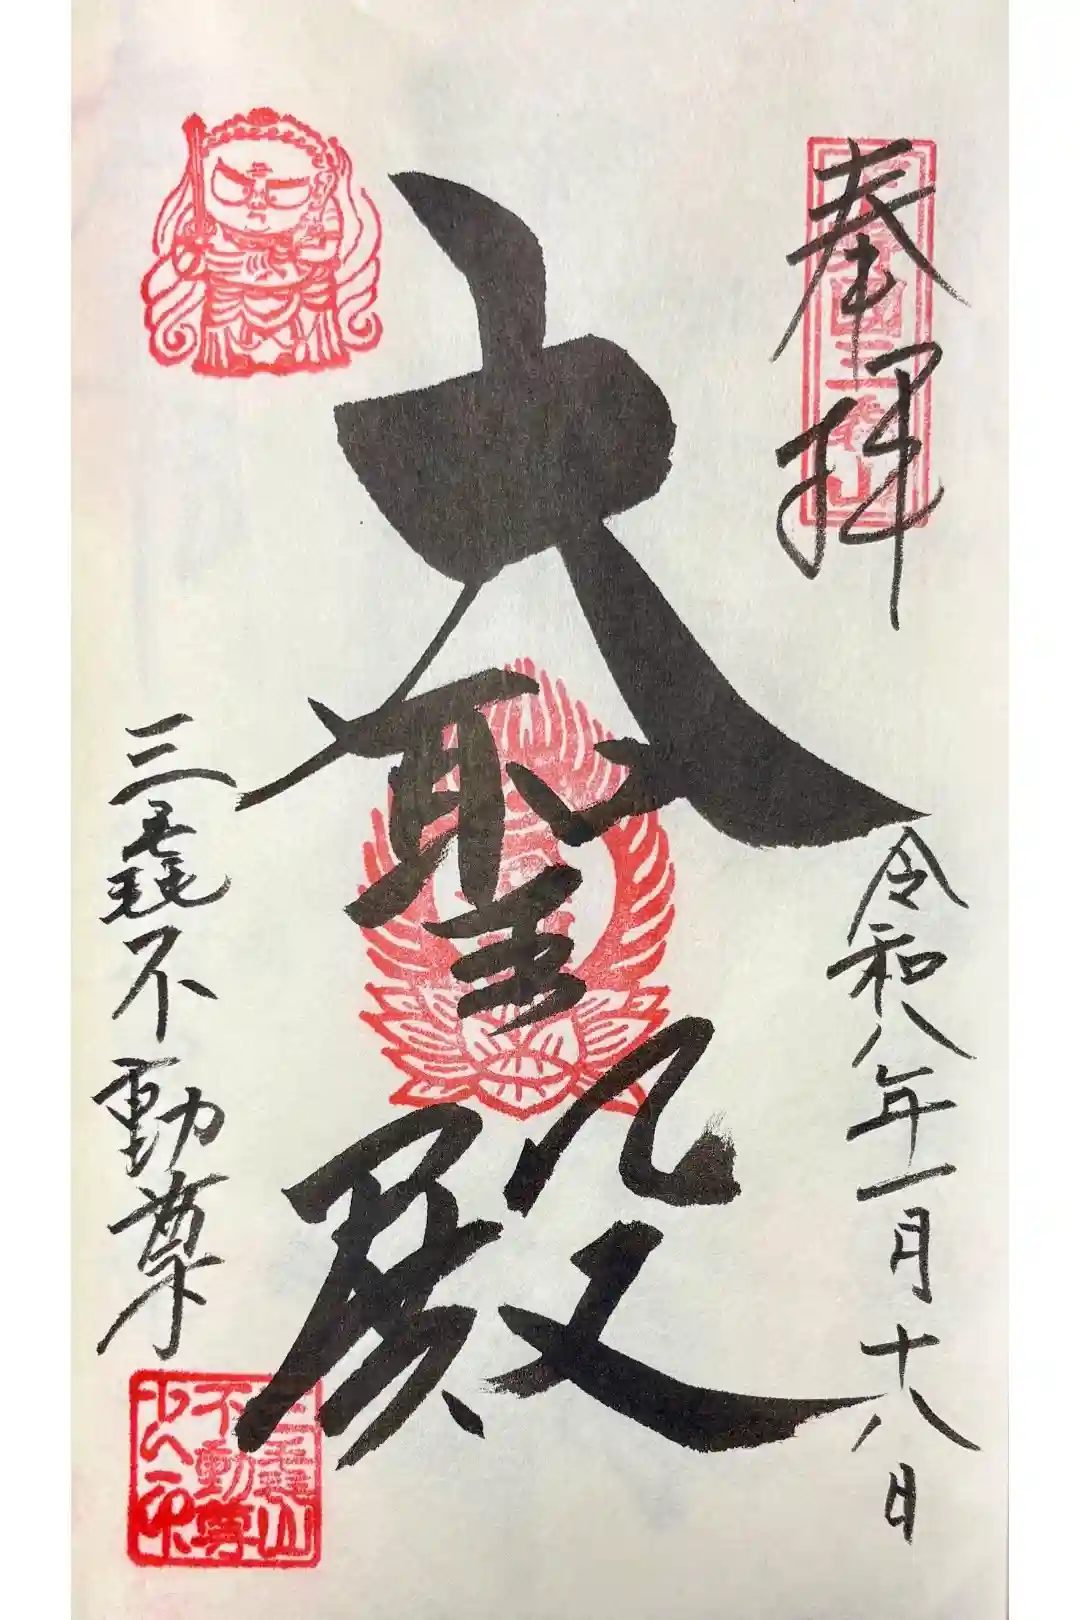 奉拝
令和八年一月十八日
大聖殿
三毳不動尊
三毳山
不動尊